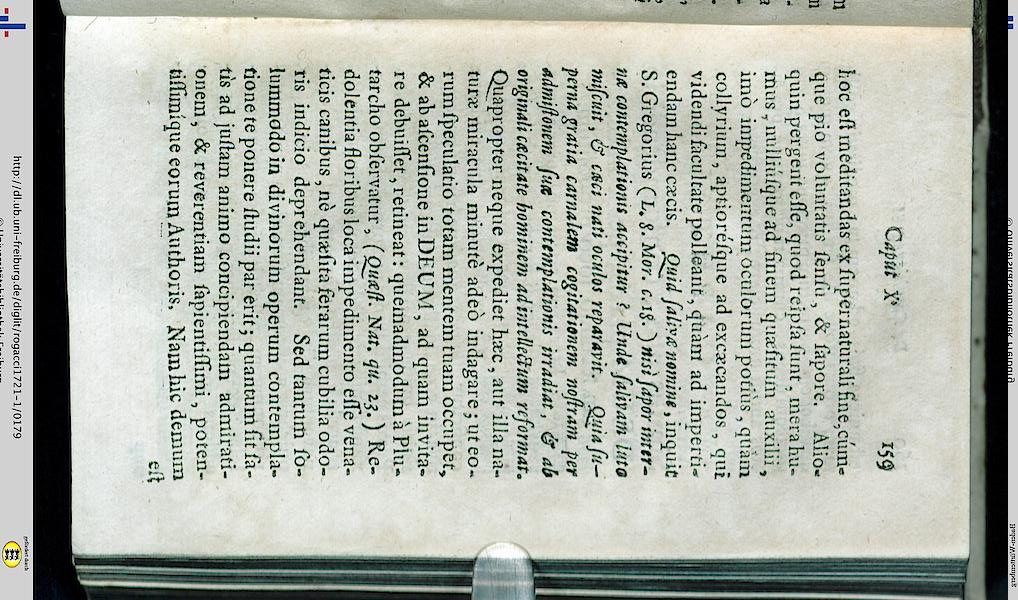 Caput X. 159
hoc est meditandas ex supernaturali fine, cúm-
que pio voluntatis sensu, & sapore. Alio-
quin pergent esse, quod reipsa sunt, mera hu-
mus, nulliúsque ad finem quæsitum auxilii,
imò impedimentum oculorum potius, quàm
collyrium, aptiorésque ad excæcandos, qui
videndi facultate polleant, quàm ad imperti-
endam hanc cæcis. Quid salivæ nomine, inquit
S. Gregorius (L. 8. Mor. c. 18.) nisi sapor inter-
næ contemplationis accipitur? Unde salivam luto
miscuit, & cæci nati oculos reparavit. Quia su-
perna gratia carnalem cogitationem nostram per
admistionem suæ contemplationis irradiat, & ab
originali cæcitate hominem ad intellectum reformat.
Quapropter neque expediet hæc, aut illa na-
turæ miracula minutè adeò indagare; ut eo-
rum speculatio totam mentem tuam occupet,
& ab ascensione in DEUM, ad quam invita-
re debuisset, retineat: quemadmodum à Plu-
tarcho observatur, (Quæst. Nat. qu. 23.) Re-
dolentia floribus loca impedimento esse vena-
ticis canibus, nè quæsita ferarum cubilia odo-
ris indicio deprehendant. Sed tantum so-
lummodo in divinorum operum contempla-
tione te ponere studii par erit; quantum sit sa-
tis ad justam animo concipiendam admirati-
onem, & reverentiam sapientissimi, poten-
tissimíque eorum Authoris. Nam hic demum
est
http://dl.ub.uni-freiburg.de/diglit/rogacci1721-1/0179
© Universitätsbibliothek Freiburg
gefördert durch